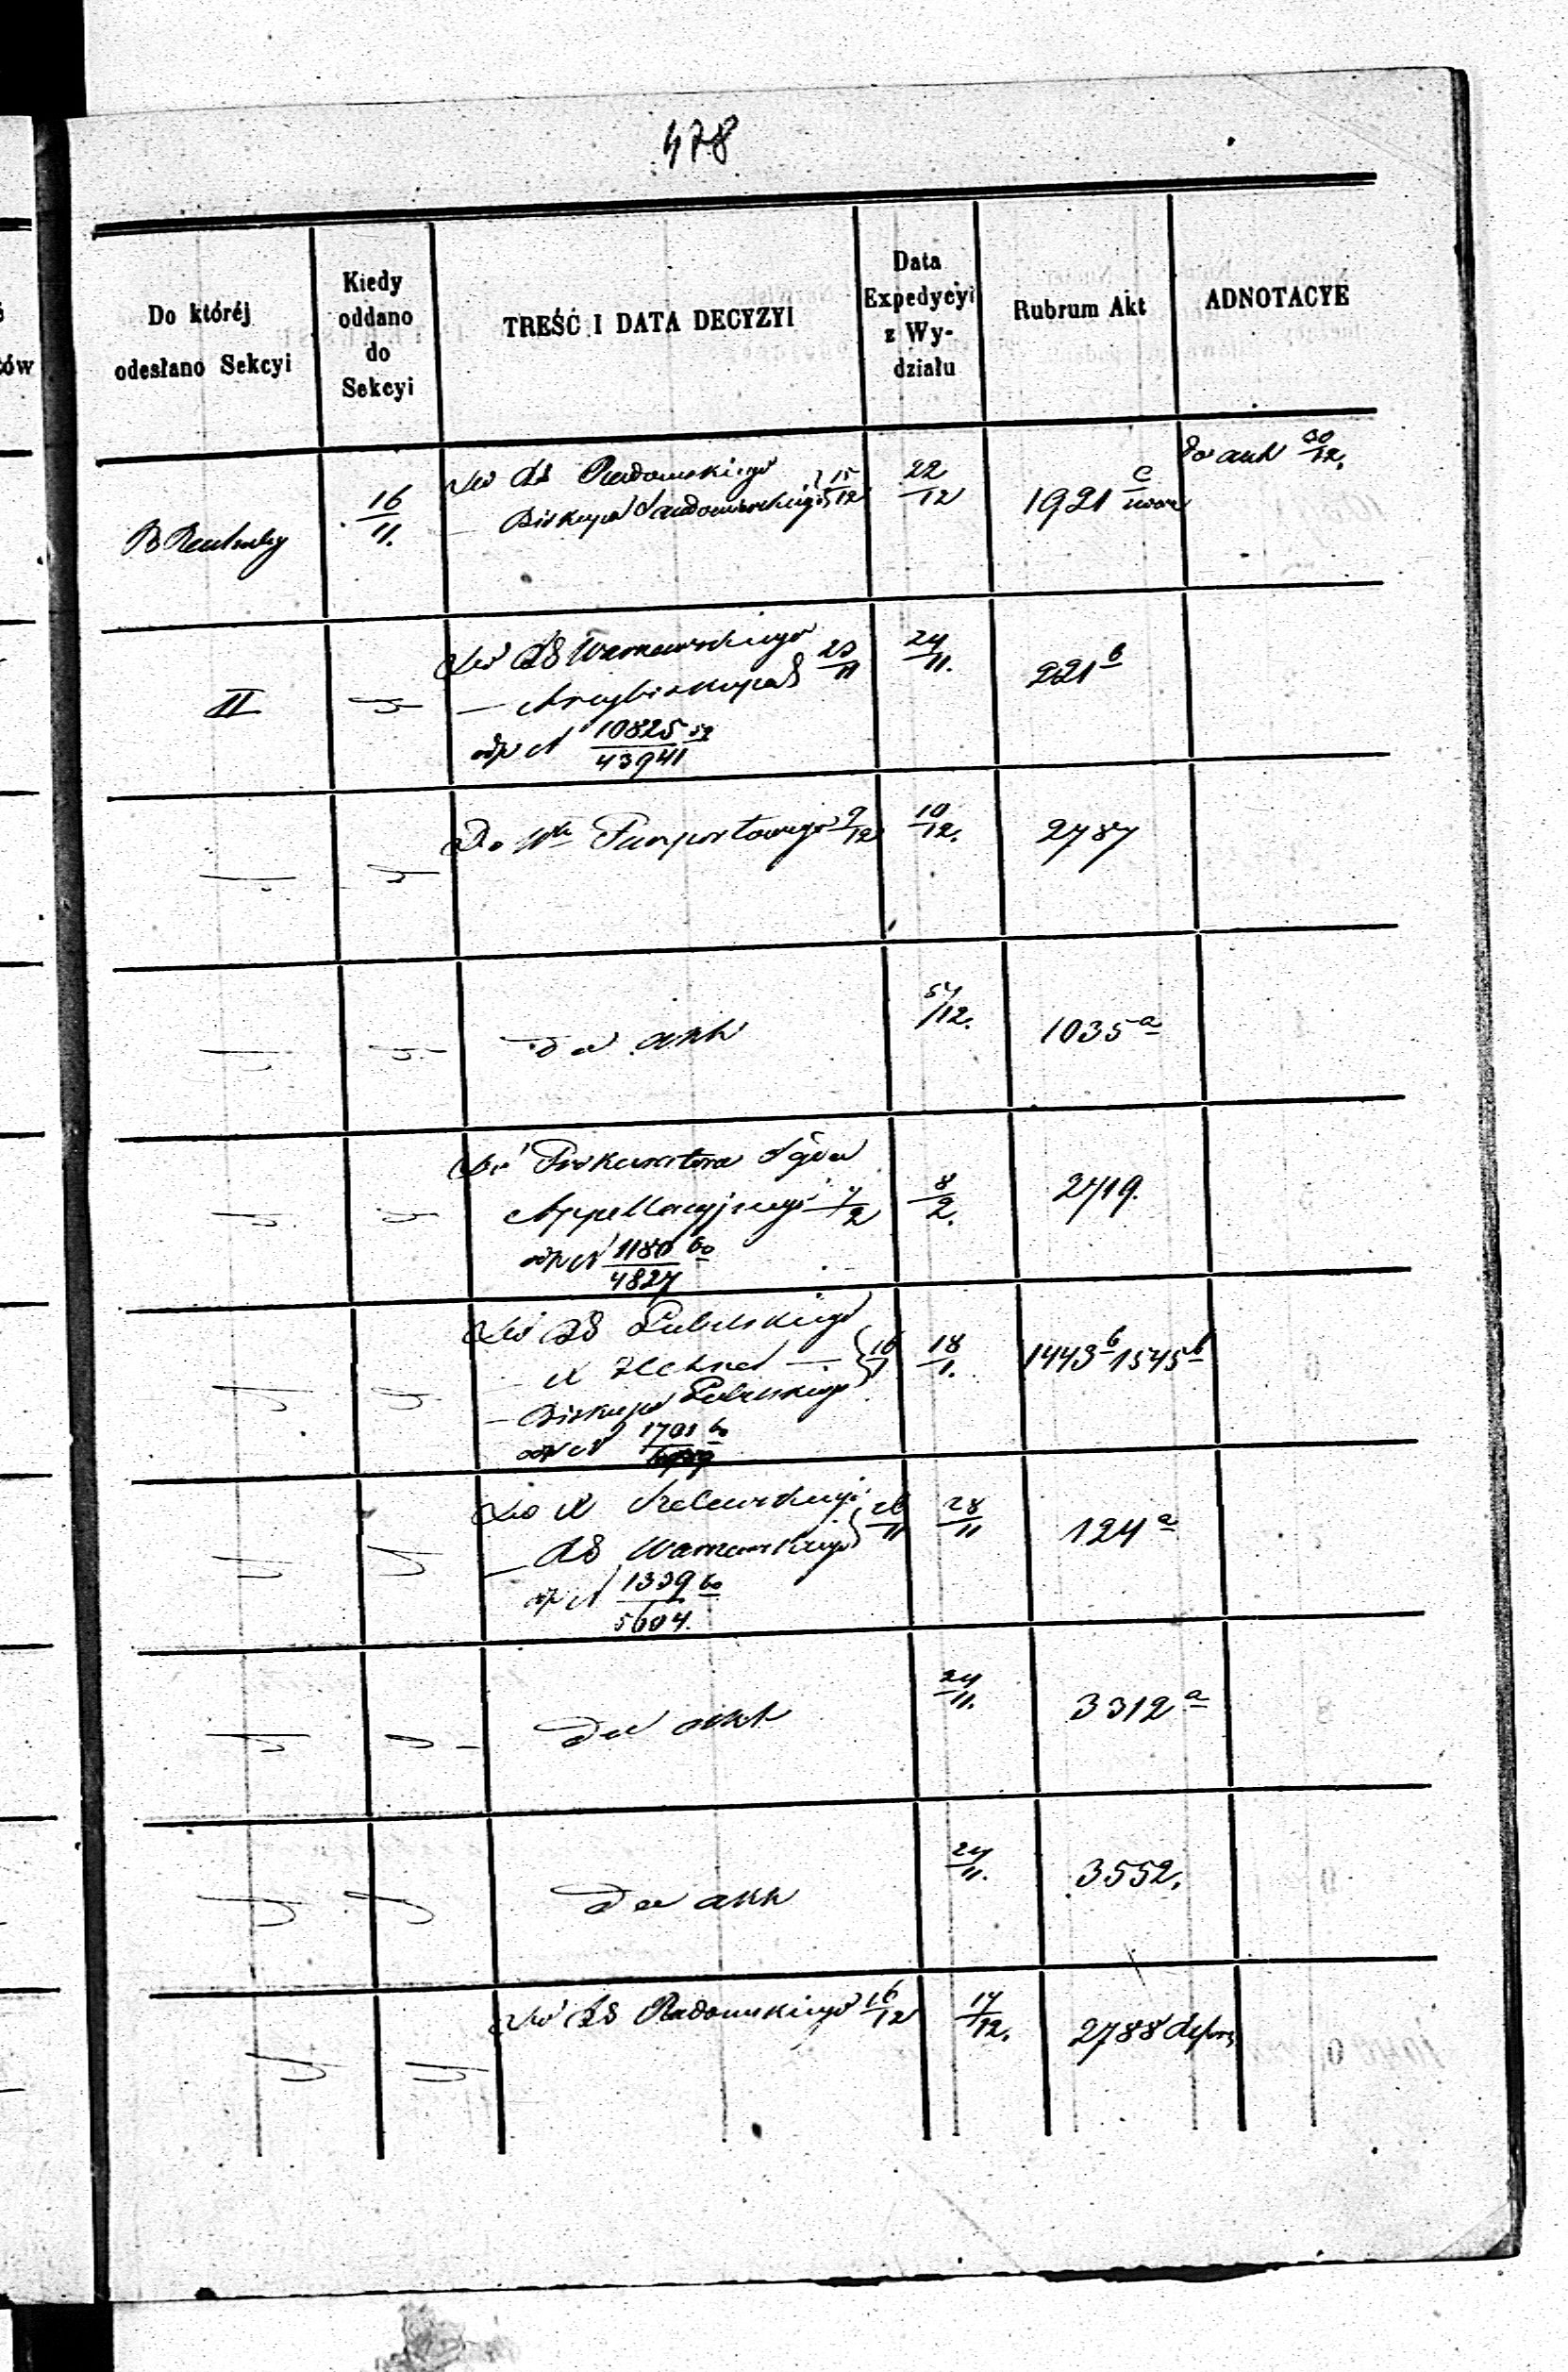 478
Do któréj
odesłano Sekcyi
Kiedy
oddano
do
Sekcyi
TREŚĆ I DATA DECYZYI
Data
Expedycyi
z Wy-
działu
Rubrum Akt
ADNOTACYE
16/11.
Do RG Radomskiego
— Biskupa Sandomierskiego } 15/12
22/12
1921 C
do akt 30/12.
II
Do RG Warszawskiego
— Arcybiskupa } 23/11
odp N 10825/43941 59
24/11.
221 b
Do Paszportowego 9/12
10/12.
2787
do akt
5/12.
1035 a
Do Prokuratora Sądu
Appellacyjnego 7/2
odp N 1180/4827 60
8/2.
2719.
Do RG Lubelskiego
— Biskupa Lubelskiego } 16/1
odp N 1701 60
18/1.
1443 b 1545 b
Do X
— RG Warszawskiego } 26/11
odp N 1339/5604. 60
28/11
124 a
do akt
24/11.
3312 a
do akt
24/11.
3552.
Do RG Radomskiego 16/12
17/12.
2788